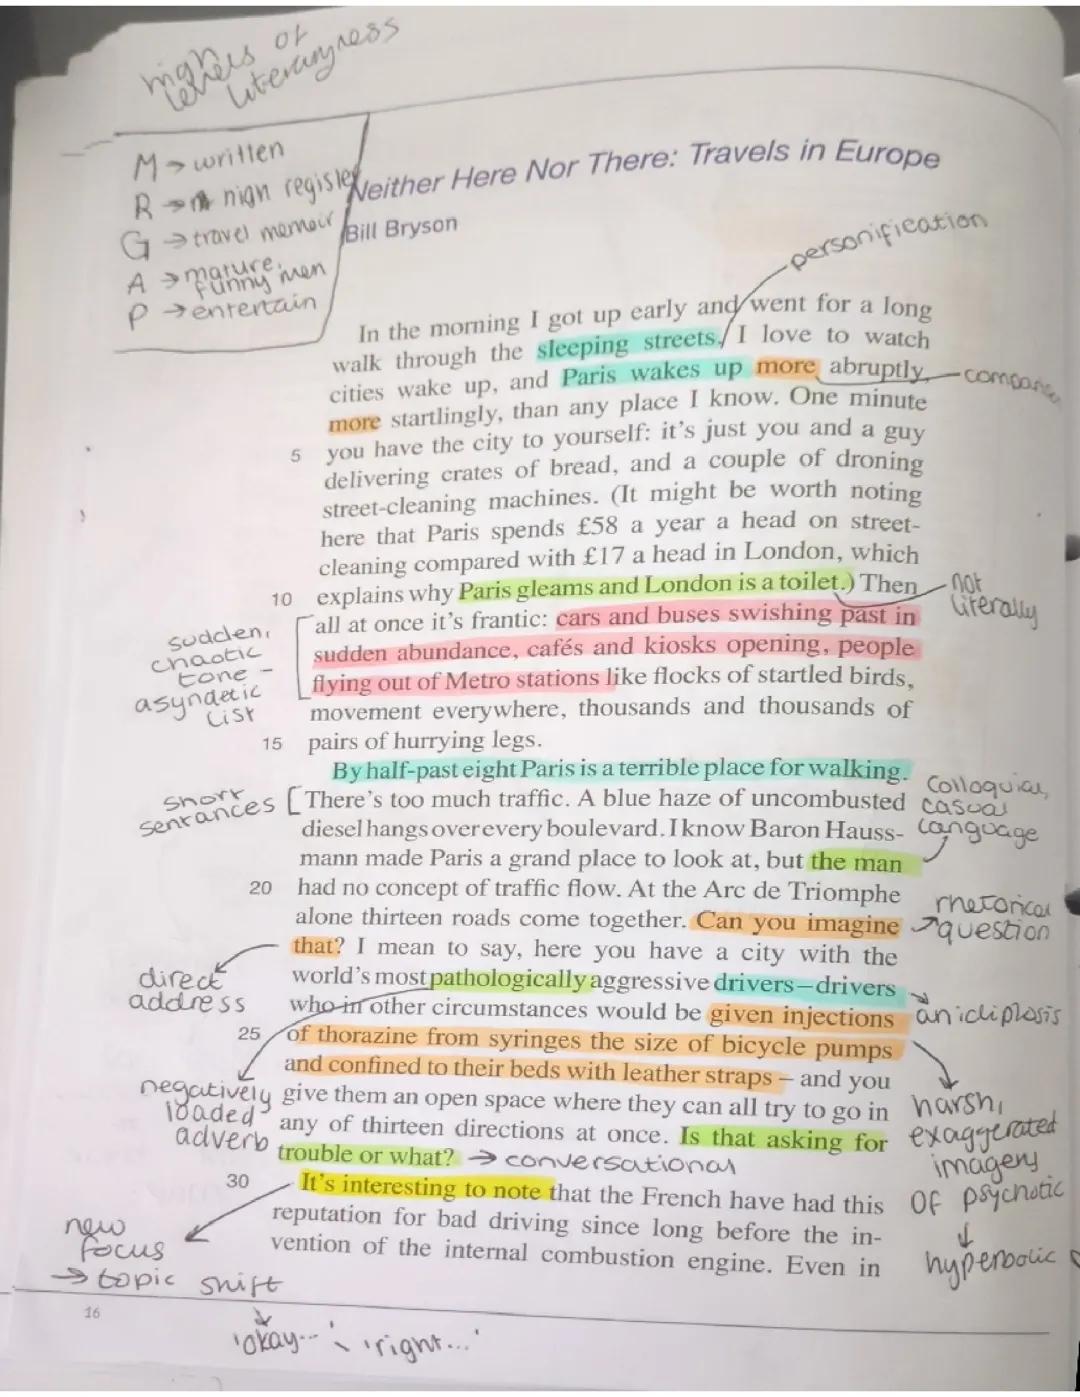 higher levels of
literaryness
M → written
R → high register
G → travel memoir
A → mature, funny men
P → entertain
Neither Here Nor There: Travels in Europe
Bill Bryson
personification
In the morning I got up early and went for a long
walk through the sleeping streets. I love to watch
cities wake up, and Paris wakes up more abruptly,
more startlingly, than any place I know. One minute
5 you have the city to yourself: it's just you and a guy
delivering crates of bread, and a couple of droning
street-cleaning machines. (It might be worth noting
here that Paris spends £58 a year a head on street-
cleaning compared with £17 a head in London, which
10 explains why Paris gleams and London is a toilet.) Then
not
literally
all at once it's frantic: cars and buses swishing past in
sudden abundance, cafés and kiosks opening, people
flying out of Metro stations like flocks of startled birds,
sudden,
chaotic
tone –
asyndetic
list
movement everywhere, thousands and thousands of
15 pairs of hurrying legs.
By half-past eight Paris is a terrible place for walking.
There's too much traffic. A blue haze of uncombusted
short
sentances
colloquial,
casual
language
diesel hangs over every boulevard. I know Baron Hauss-
mann made Paris a grand place to look at, but the man
20 had no concept of traffic flow. At the Arc de Triomphe
alone thirteen roads come together. Can you imagine
rhetorical
question
that? I mean to say, here you have a city with the
direct
address
world's most pathologically aggressive drivers – drivers
who in other circumstances would be given injections
anidiplosis
25 of thorazine from syringes the size of bicycle pumps
and confined to their beds with leather straps – and you
give them an open space where they can all try to go in
negatively
loaded
adverb
harsh,
exaggerated
imagery
of psychotic
↓
hyperbolic
any of thirteen directions at once. Is that asking for
trouble or what? → conversational
30 It's interesting to note that the French have had this
reputation for bad driving since long before the in-
vention of the internal combustion engine. Even in
new
focus
→ topic shift
16
'okay...' \ 'right...'